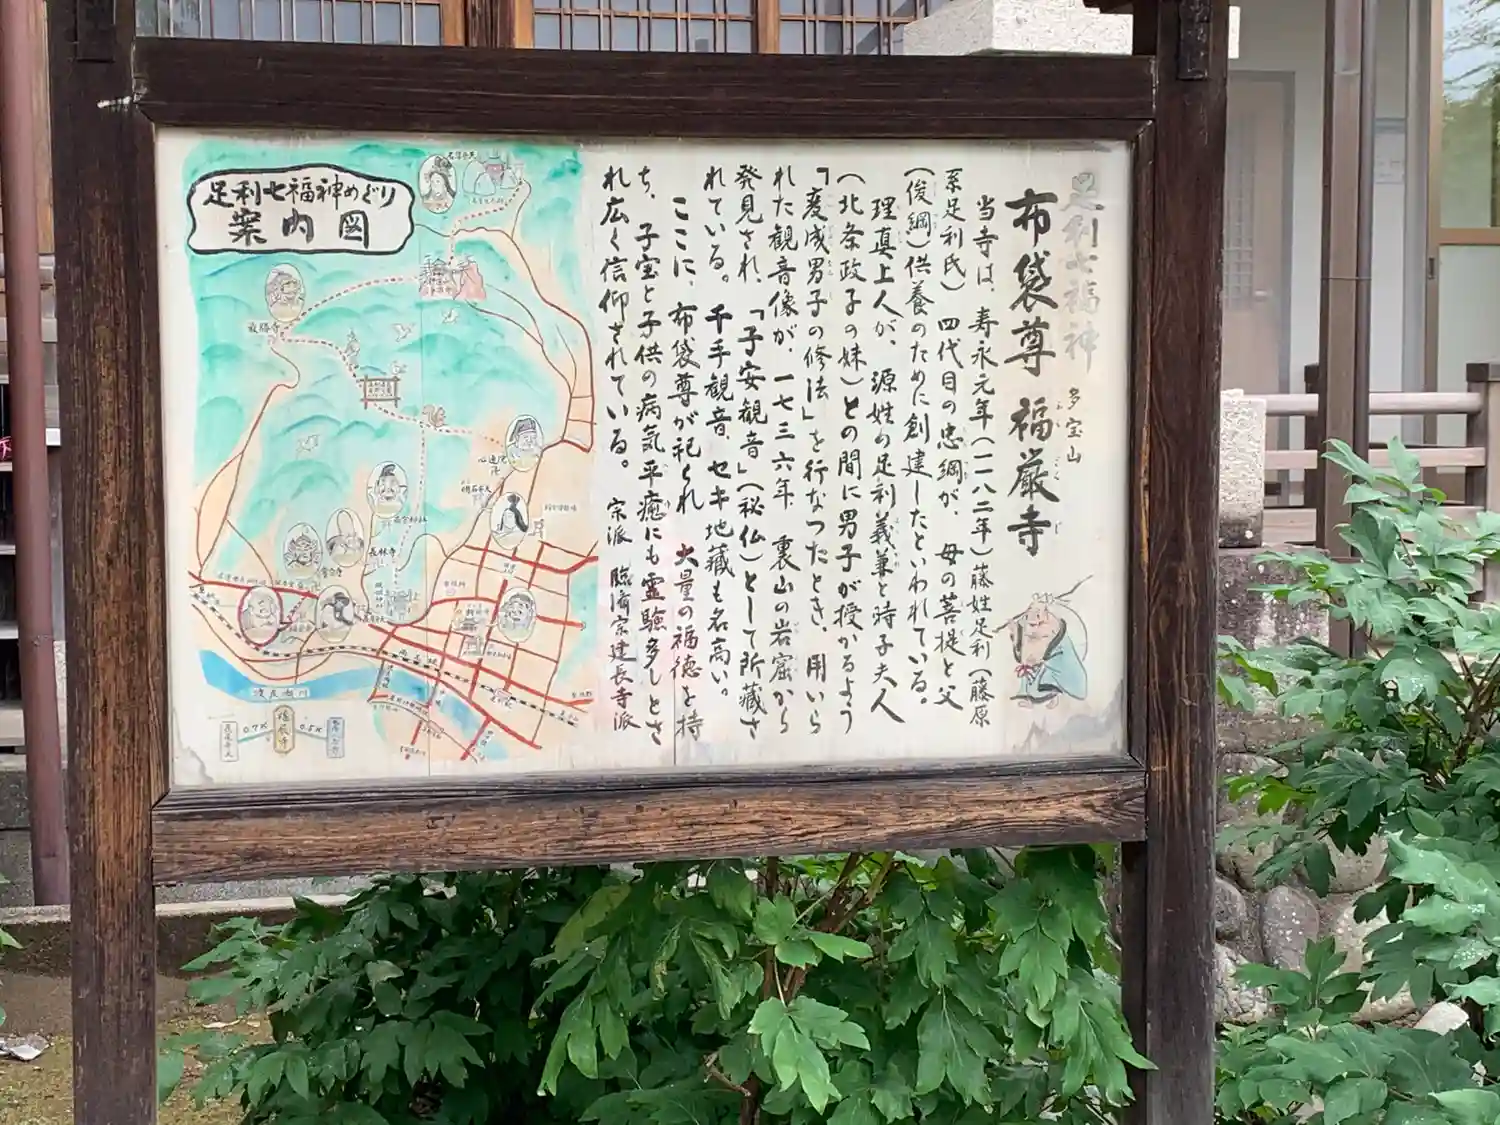 足利七福神
布袋尊 福厳寺
ふく ごん じ
多宝山
当寺は、寿永元年（一一八二年）藤姓足利（藤原
系足利氏）四代目の忠綱が、母の菩提と父
（俊綱）供養のために創建したといわれている。
理真上人が、源姓の足利義兼と時子夫人
（北条政子の妹）との間に男子が授かるよう
「変成男子の修法」を行なつたとき、用いら
れた観音像が、一七三六年、裏山の岩窟から
発見され、「子安観音」（秘仏）として所蔵さ
れている。千手観音、セキ地蔵も名高い。
ここに、布袋尊が祀られ 大量の福徳を持
ち、子宝と子供の病気平癒にも霊験多しとさ
れ広く信仰されている。 宗派 臨済宗建長寺派
足利七福神めぐり
案内図
名草弁天
最勝寺
心通院
長林寺
渡良瀬川
0.7K
福厳寺
0.5K